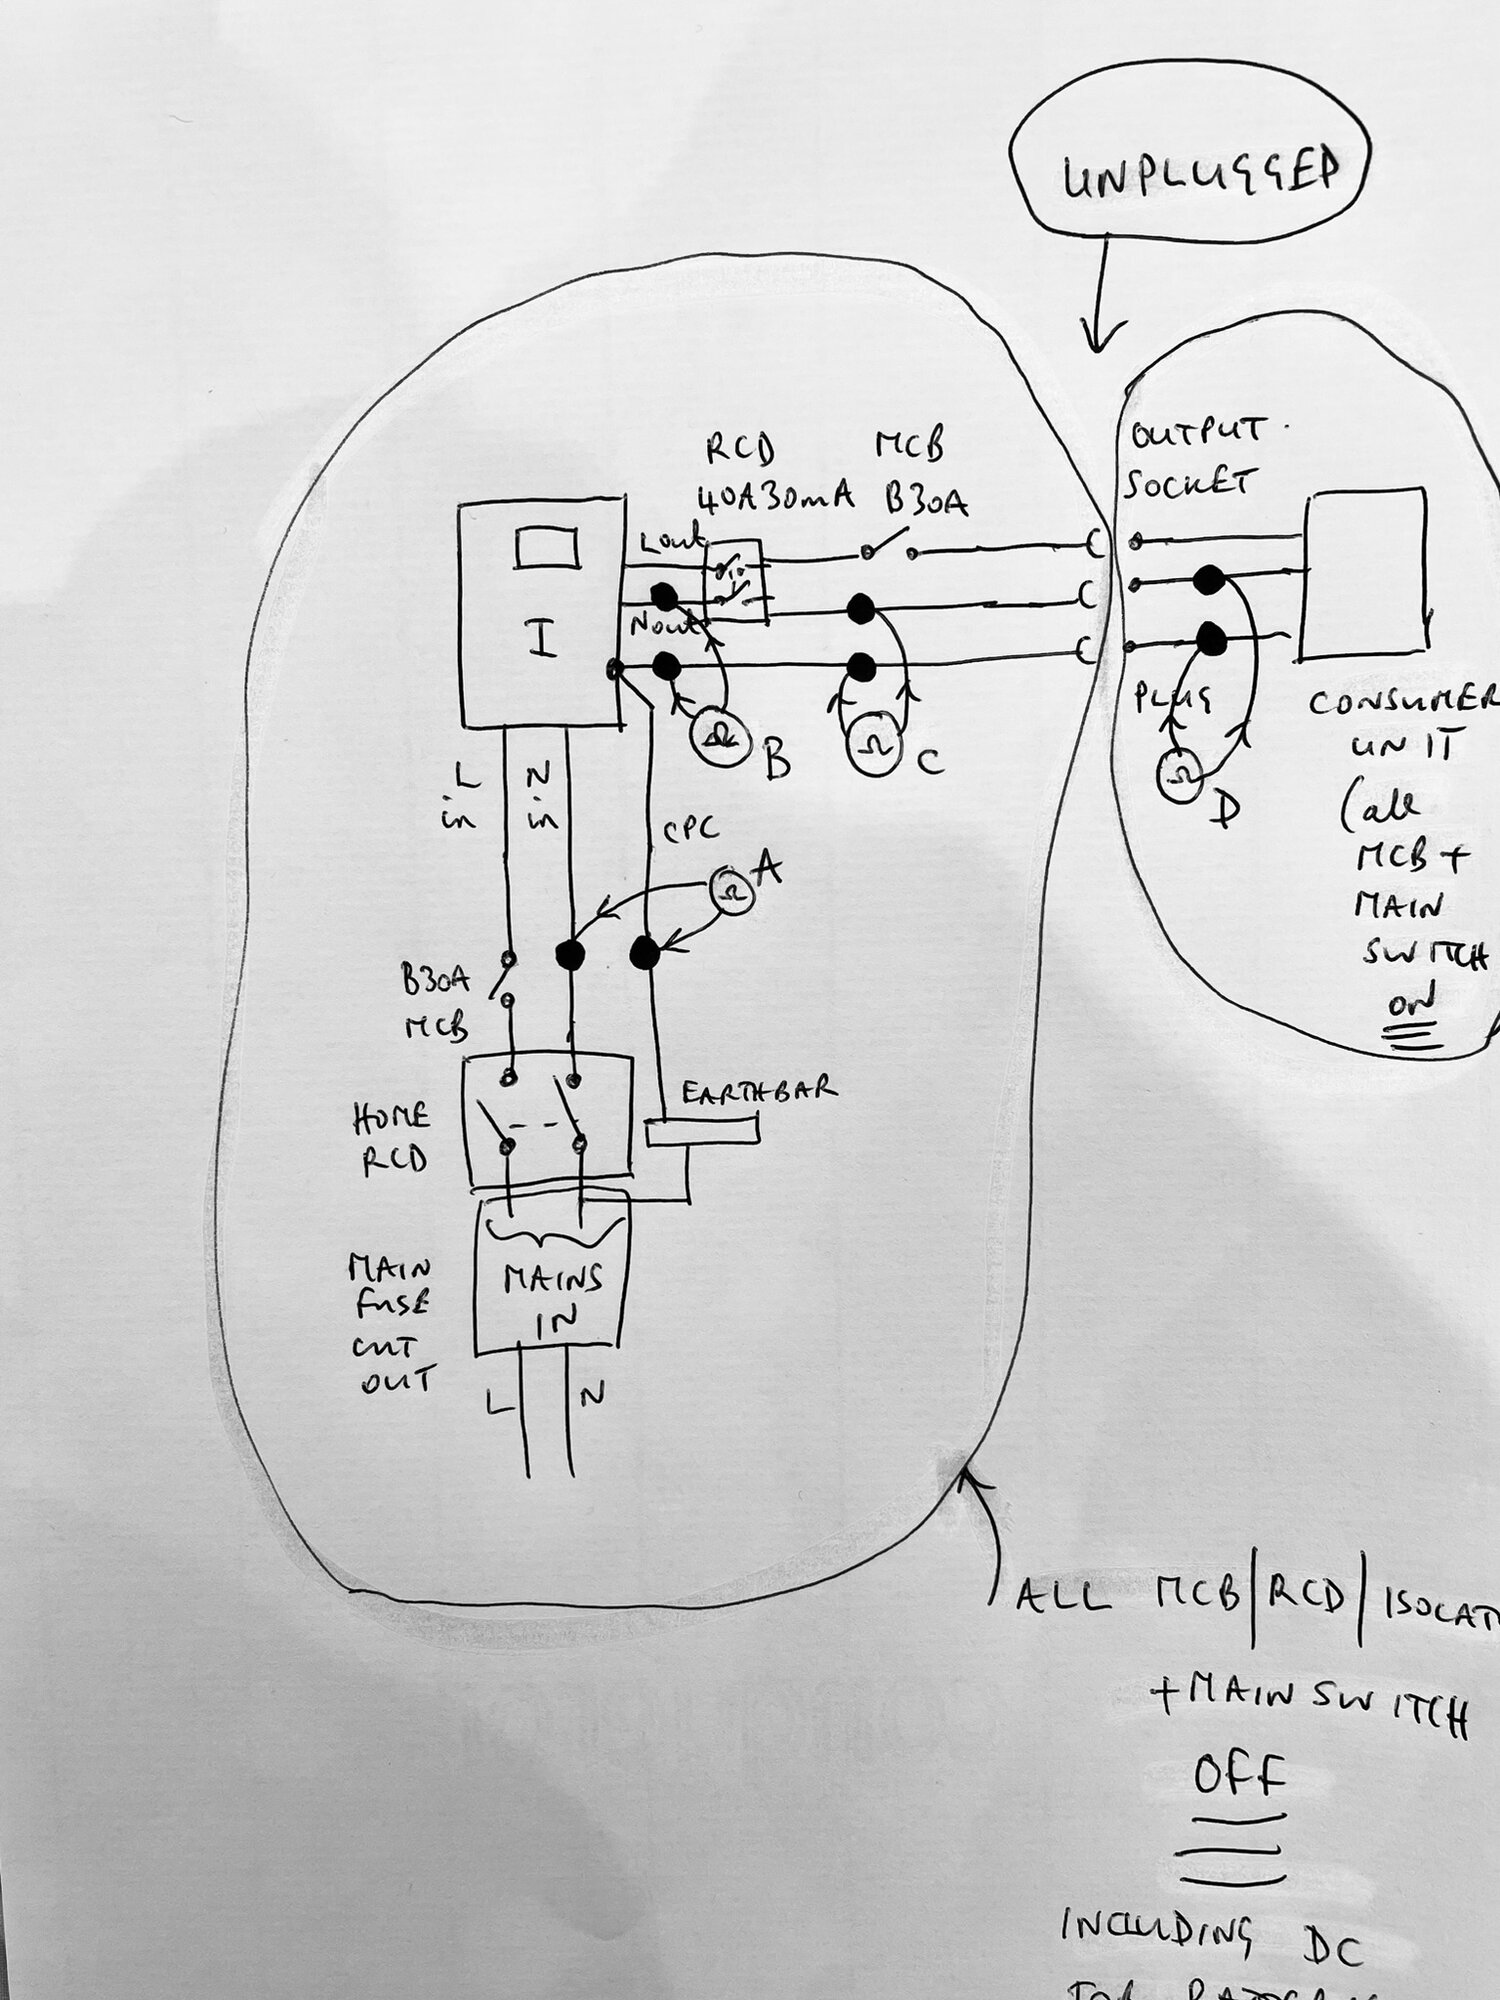 UNPLUGGED
OUTPUT
SOCKET
RCD
40A30mA
MCB
B30A
Lout
Nout
I
L
in
N
in
CPC
Ω B
Ω C
PLUG
Ω D
Ω A
CONSUMER
UNIT
(all
MCB +
MAIN
SWITCH
ON
B30A
MCB
HOME
RCD
EARTHBAR
MAIN
FUSE
CUT
OUT
MAINS
IN
L
N
ALL MCB/RCD/ISOLAT
+MAIN SWITCH
OFF
INCLUDING DC